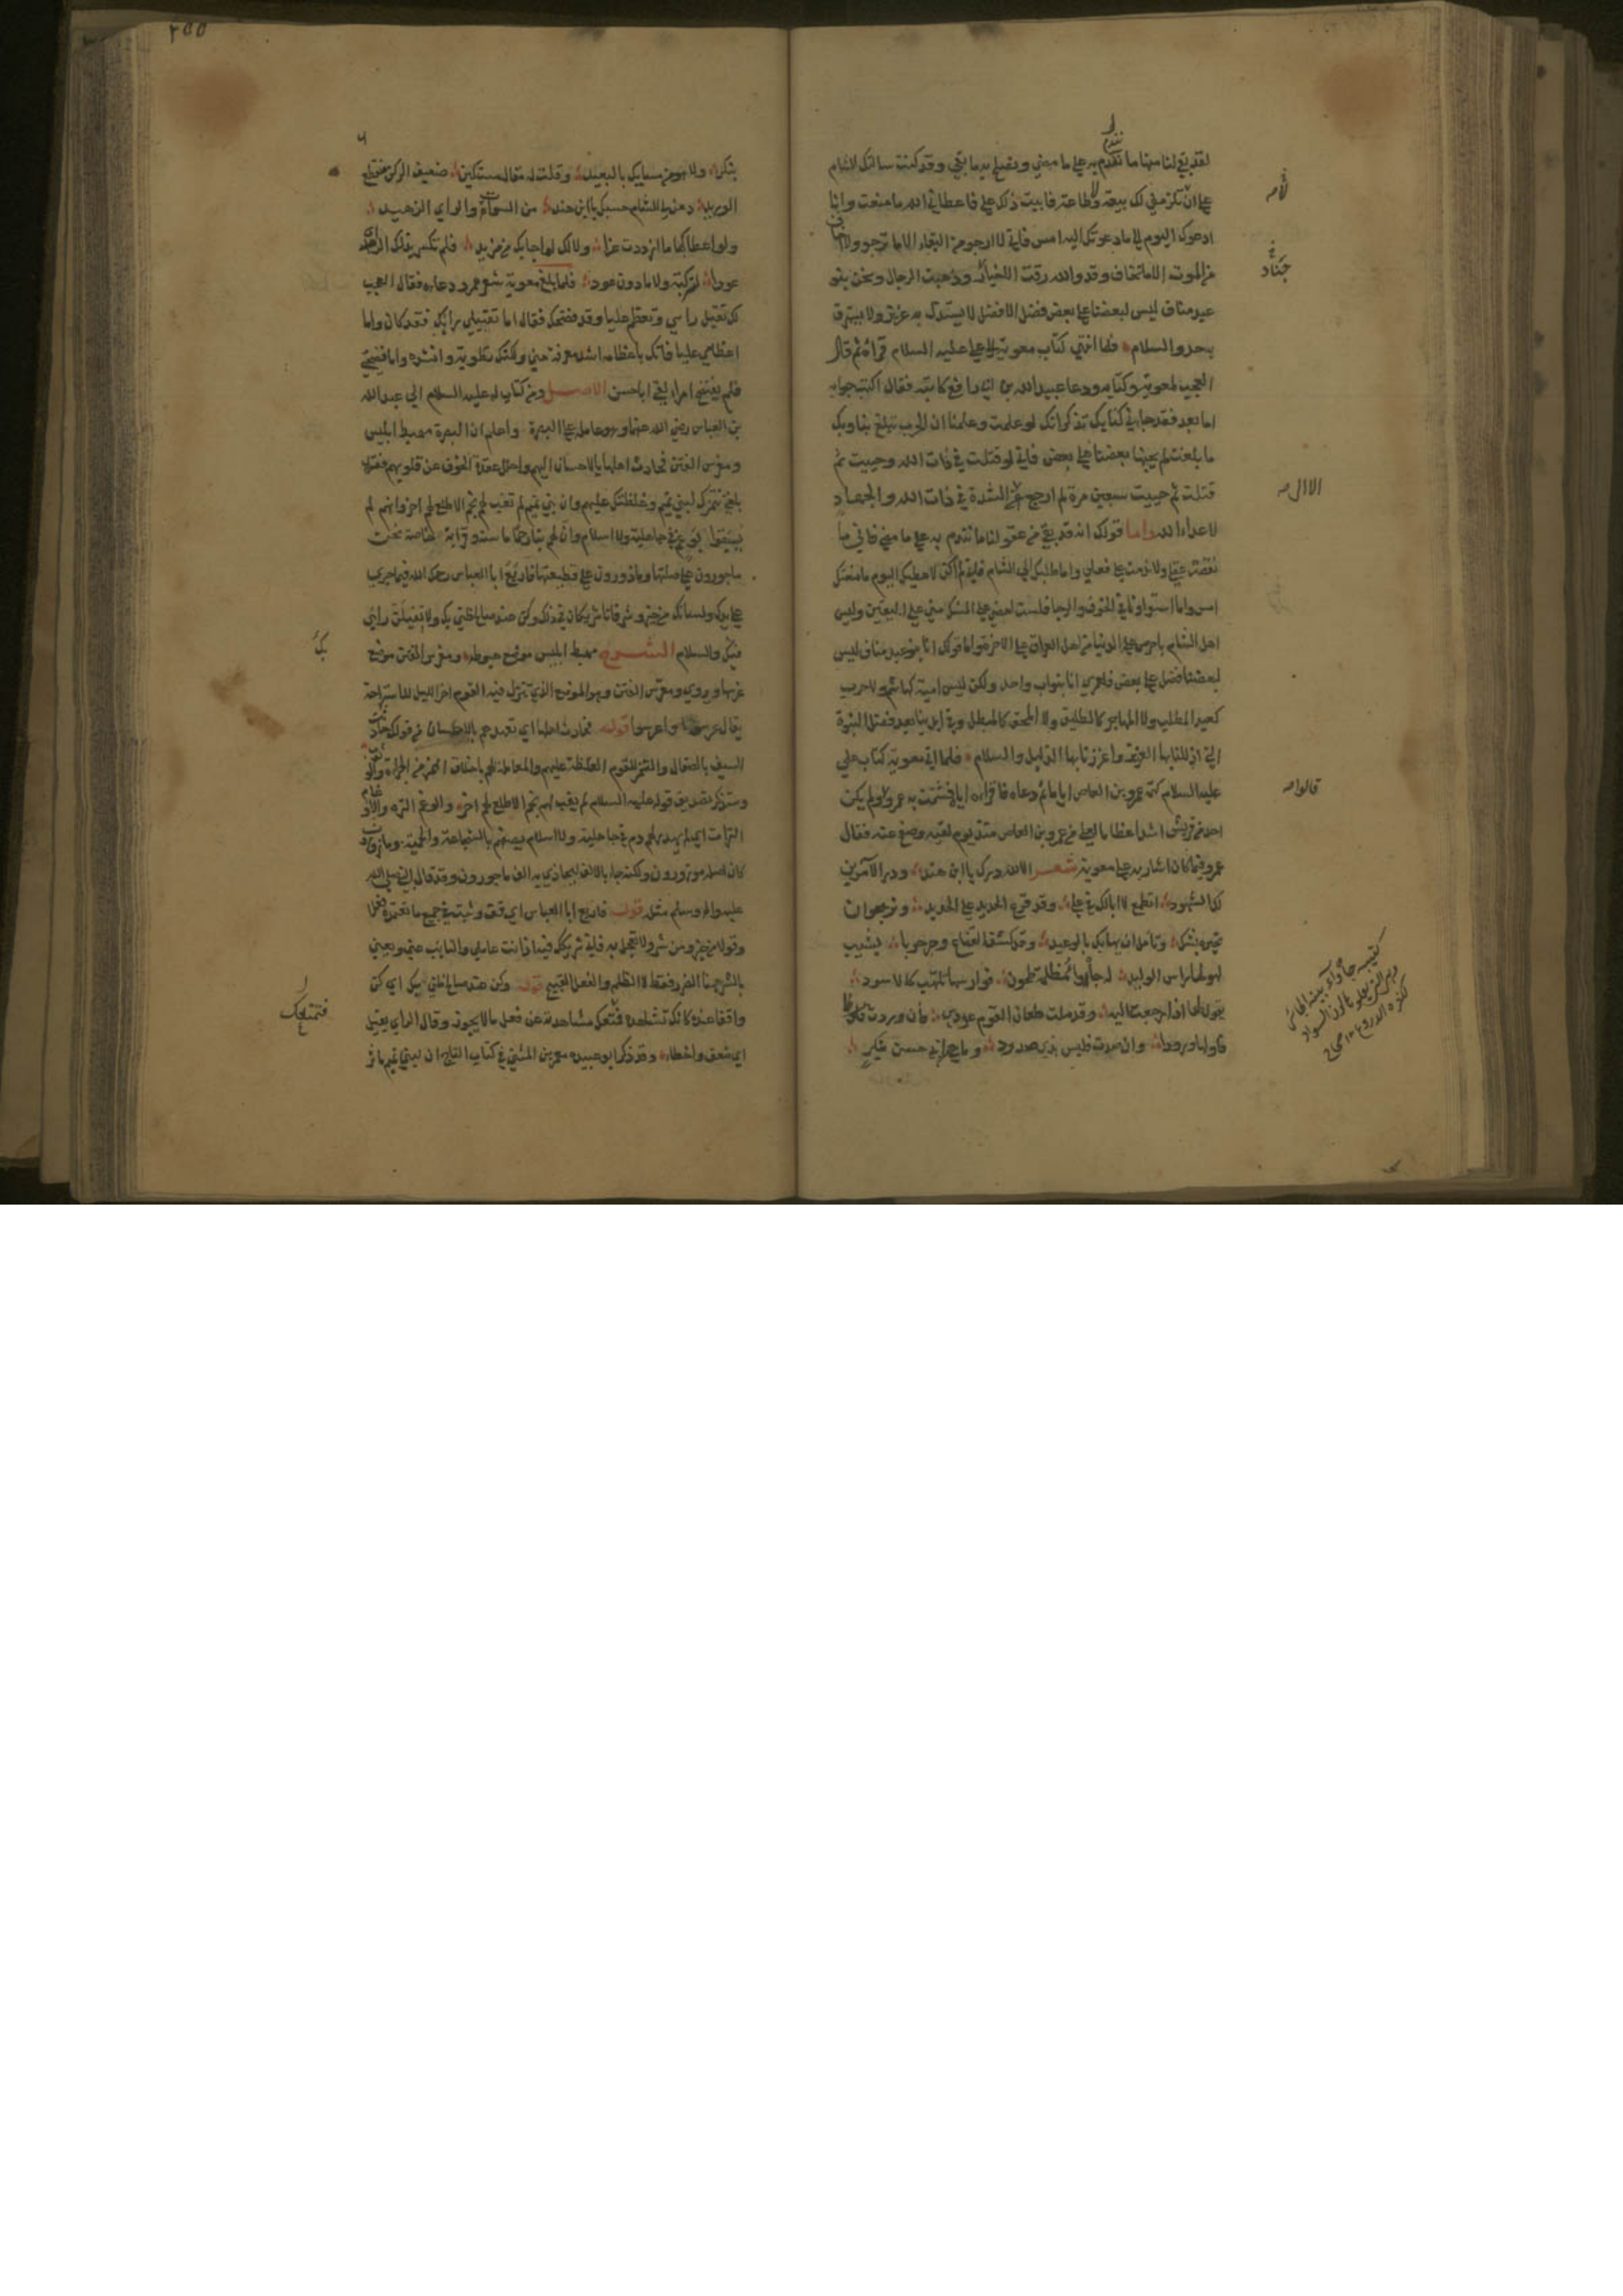 لقد بقي لنا منها ما نندم به على ما مضى ونصلح به ما بقي وقد كنت سالتك الشام
على ان لا تلزمني لك بيعة ولا طاعة فابيت ذلك علي فاعطاني الله ما منعت وانا
ادعوك اليوم الى ما دعوتك اليه امس فاني لا ارجو من البقاء الا ما ترجو ولا اخاف
من الموت الا ما تخاف وقد والله رقت الاجناد وذهبت الرجال ونحن بنو
عبد مناف ليس لبعضنا على بعض فضل الا فضل لا يستذل به عزيز ولا يسترق
به حر والسلام فلما انتهى كتاب معوية الى علي عليه السلام قراه ثم قال
العجب لمعوية وكتابه ودعا عبيد الله بن ابي رافع كاتبه فقال اكتب جوابه
اما بعد فقد جاءني كتابك تذكر انك لو علمت وعلمنا ان الحرب تبلغ بنا وبك
ما بلغت لم يجنها بعضنا على بعض فاني لو قتلت في ذات الله وحييت ثم
قتلت ثم حييت سبعين مرة لم ارجع عن الشدة في ذات الله والجهاد
لاعداء الله واما قولك انه قد بقي من عقولنا ما نندم به على ما مضى فاني ما
نقصت عقلي ولا ندمت على فعلي واما طلبك الي الشام فاني لم اكن لاعطيك اليوم ما منعتك
امس واما استواؤنا في الخوف والرجا فلست امضى على الشك مني على اليقين وليس
اهل الشام باحرص على الدنيا من اهل العراق على الاخرة واما قولك انا بنو عبد مناف ليس
لبعضنا فضل على بعض فلعمري انا بنو اب واحد ولكن ليس امية كهاشم ولا حرب
كعبد المطلب ولا المهاجر كالطليق ولا المحق كالمبطل وفي ايدينا بعد فضل النبوة
التي اذللنا بها العزيز واعززنا بها الذليل والسلام فلما اتى معوية كتاب علي
عليه السلام كتمه عمرو بن العاص اياما ثم دعاه فاقراه اياه فشمت به عمرو ولم يكن
احد من قريش اشد اعظاما لعلي من عمرو بن العاص منذ يوم لقيه وصفح عنه فقال
عمرو فيما كان اشار به على معوية شعر الا لله درك يا ابن هند ودر الآمرين
لك الشهود اتطمع لا ابا لك في علي وقد قرع الحديد على الحديد وترجو ان
تحيره بشك وتامل ان يهابك بالوعيد وقد كشف القناع وجر حربا يشيب
لهولها راس الوليد له جأواء مظلمة طحون فوارسها تلهب كالاسود
يقول لها اذا رجعت اليه وقد ملت طعان القوم عودي فان وردت
فاولها ورودا وان صدت فليس بذي صدود وما هي من ابي حسن بنكر
لا صه
جناد
الا الى صه
قالوا صه
٢٥٥
بنكر ولا هو من مسايك بالبعيد وقلت له مقالة مستكين ضعيف الركن منقطع
الوريد دعن لي الشام حسبك يا ابن هند من السوات والراي الزهيد
ولو اعطاكها ما ازددت عزا ولا لك لو اجابك من مزيد فلم تكسر بذاك الراي
عودا لركته ولا ما دون عود فلما بلغ معوية شعر عمرو دعاه فقال العجب
لك تفيل رايي وتعظم عليا وقد فضحك فقال اما تفييلي رايك فقد كان واما
اعظامي عليا فانك باعظامه اشد معرفة مني ولكنك تطويه وانشره واما فضيحتي
فلم يفتضح امرؤ لقي ابا حسن الاصل ومن كتاب له عليه السلام الى عبد الله
بن العباس رضي الله عنهما وهو عامله على البصرة واعلم ان البصرة مهبط ابليس
ومغرس الفتن فحادث اهلها بالاحسان اليهم واحلل عقدة الخوف عن قلوبهم وقد
بلغني تنمرك لبني تميم وغلظتك عليهم وان بني تميم لم تغب لهم نجم الا طلع لهم اخر وانهم لم
يسبقوا بوغم في جاهلية ولا اسلام وان لهم بنا رحما ماسة وقرابة خاصة نحن
ماجورون على صلتها ومازورون على قطيعتها فاربع ابا العباس رحمك الله فيما جرى
على يدك ولسانك من خير وشر فانا شريكان في ذلك وكن عند صالح ظني بك ولا يفيلن رايي
فيك والسلام الشرح مهبط ابليس موضع هبوطه ومغرس الفتن موضع
غرسها وروي ومعرس الفتن وهو الموضع الذي ينزل فيه القوم اخر الليل للاستراحة
يقال عرسوا واعرسوا قوله فحادث اهلها اي تعهدهم بالاحسان من قولك حادثت
السيف بالصقال والتنمر للقوم الغلظة عليهم والمعاملة لهم باخلاق النمر من الجراة
وسنذكر تصديق قوله عليه السلام لم يغب لهم نجم الا طلع لهم اخر والوغم الترة والاوغام
الترات اي لم يهدر لهم دم في جاهلية ولا اسلام يصفهم بالشجاعة والحمية ومازورون
كان اصله موزورون ولكنه جاء بالالف ليحاذي به الف ماجورون وقد قال النبي صلى الله
عليه واله وسلم مثل قوله فاربع ابا العباس اي قف وتثبت في جميع ما تعتمده فعلا
وقولا من خير ومن شر ولا تعجل به فاني شريكك فيه اذ انت عاملي والنايب عني ويعني
بالشر هنا الضرر فقط لا الظلم والفعل القبيح قوله وكن عند صالح ظني بك اي كن
واقفا عنده كانك تشاهده فتمنعك مشاهدته عن فعل ما لا يجوز وفال الراي يفيل
اي ضعف واخطا وقد ذكر ابو عبيدة معمر بن المثنى في كتاب التاج ان لبني تميم ماثر
فتمنعك